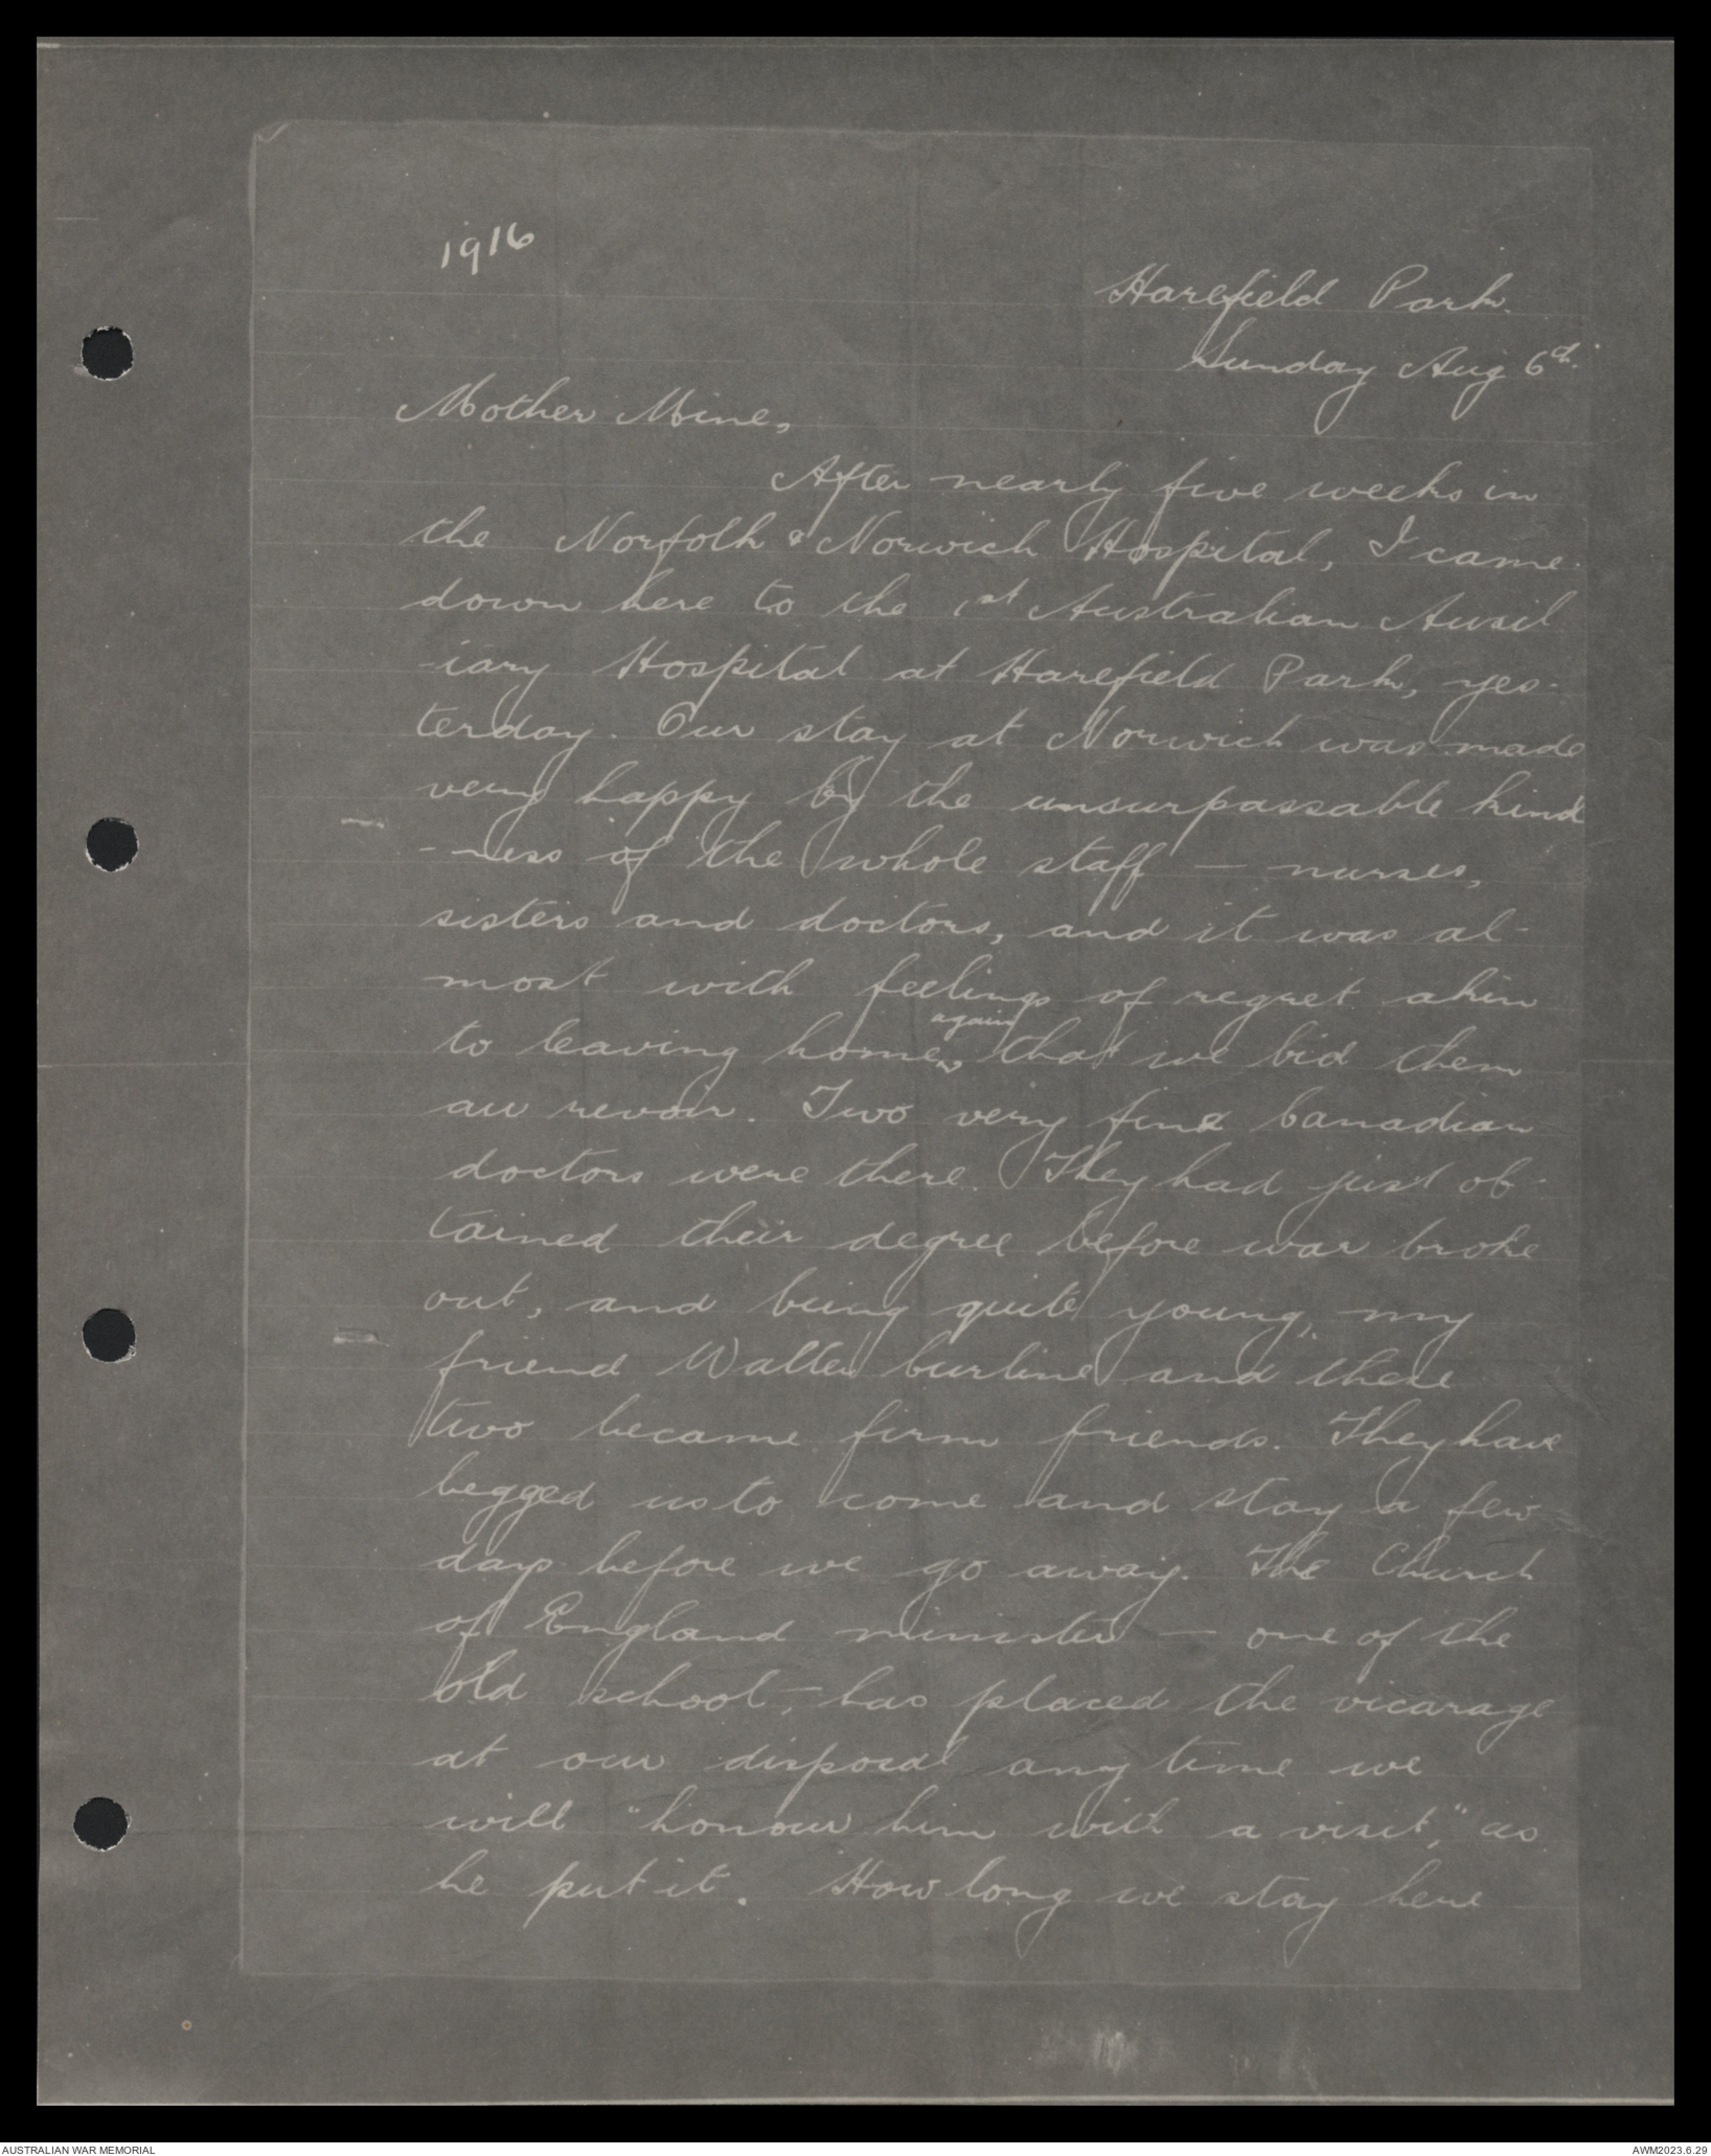 1916
Harefield Park.
Sunday Aug 6th.
Mother Mine,
After nearly five weeks in
the Norfolk & Norwich Hospital, I came
down here to the 1st Australian Auxil
-iary Hospital at Harefield Park, yes-
terday. Our stay at Norwich was made
very happy by the unsurpassable kind
-ness of the whole staff — nurses,
sisters and doctors, and it was al-
most with feelings of regret akin
to leaving home, again that we bid them
au revoir. Two very fine Canadian
doctors were there. They had just ob-
tained their degree before war broke
out, and being quite young, my
friend Walter and these
two became firm friends. They have
begged us to come and stay a few
days before we go away. The Church
of England minister — one of the
old school, — has placed the vicarage
at our disposal any time we
will "honour him with a visit," as
he put it. How long we stay here
AUSTRALIAN WAR MEMORIAL
AWM2023.6.29